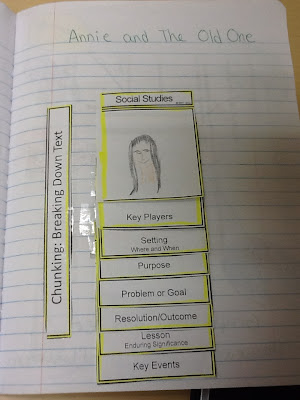 Annie and The Old One
Chunking: Breaking Down Text
Social Studies
Key Players
Setting
Where and When
Purpose
Problem or Goal
Resolution/Outcome
Lesson
Enduring Significance
Key Events